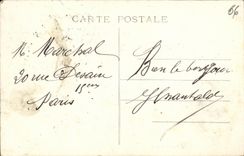 CARTE POSTALE
Mr Marchal
20 rue Desaix
15ème
Paris
Bon le bonjour